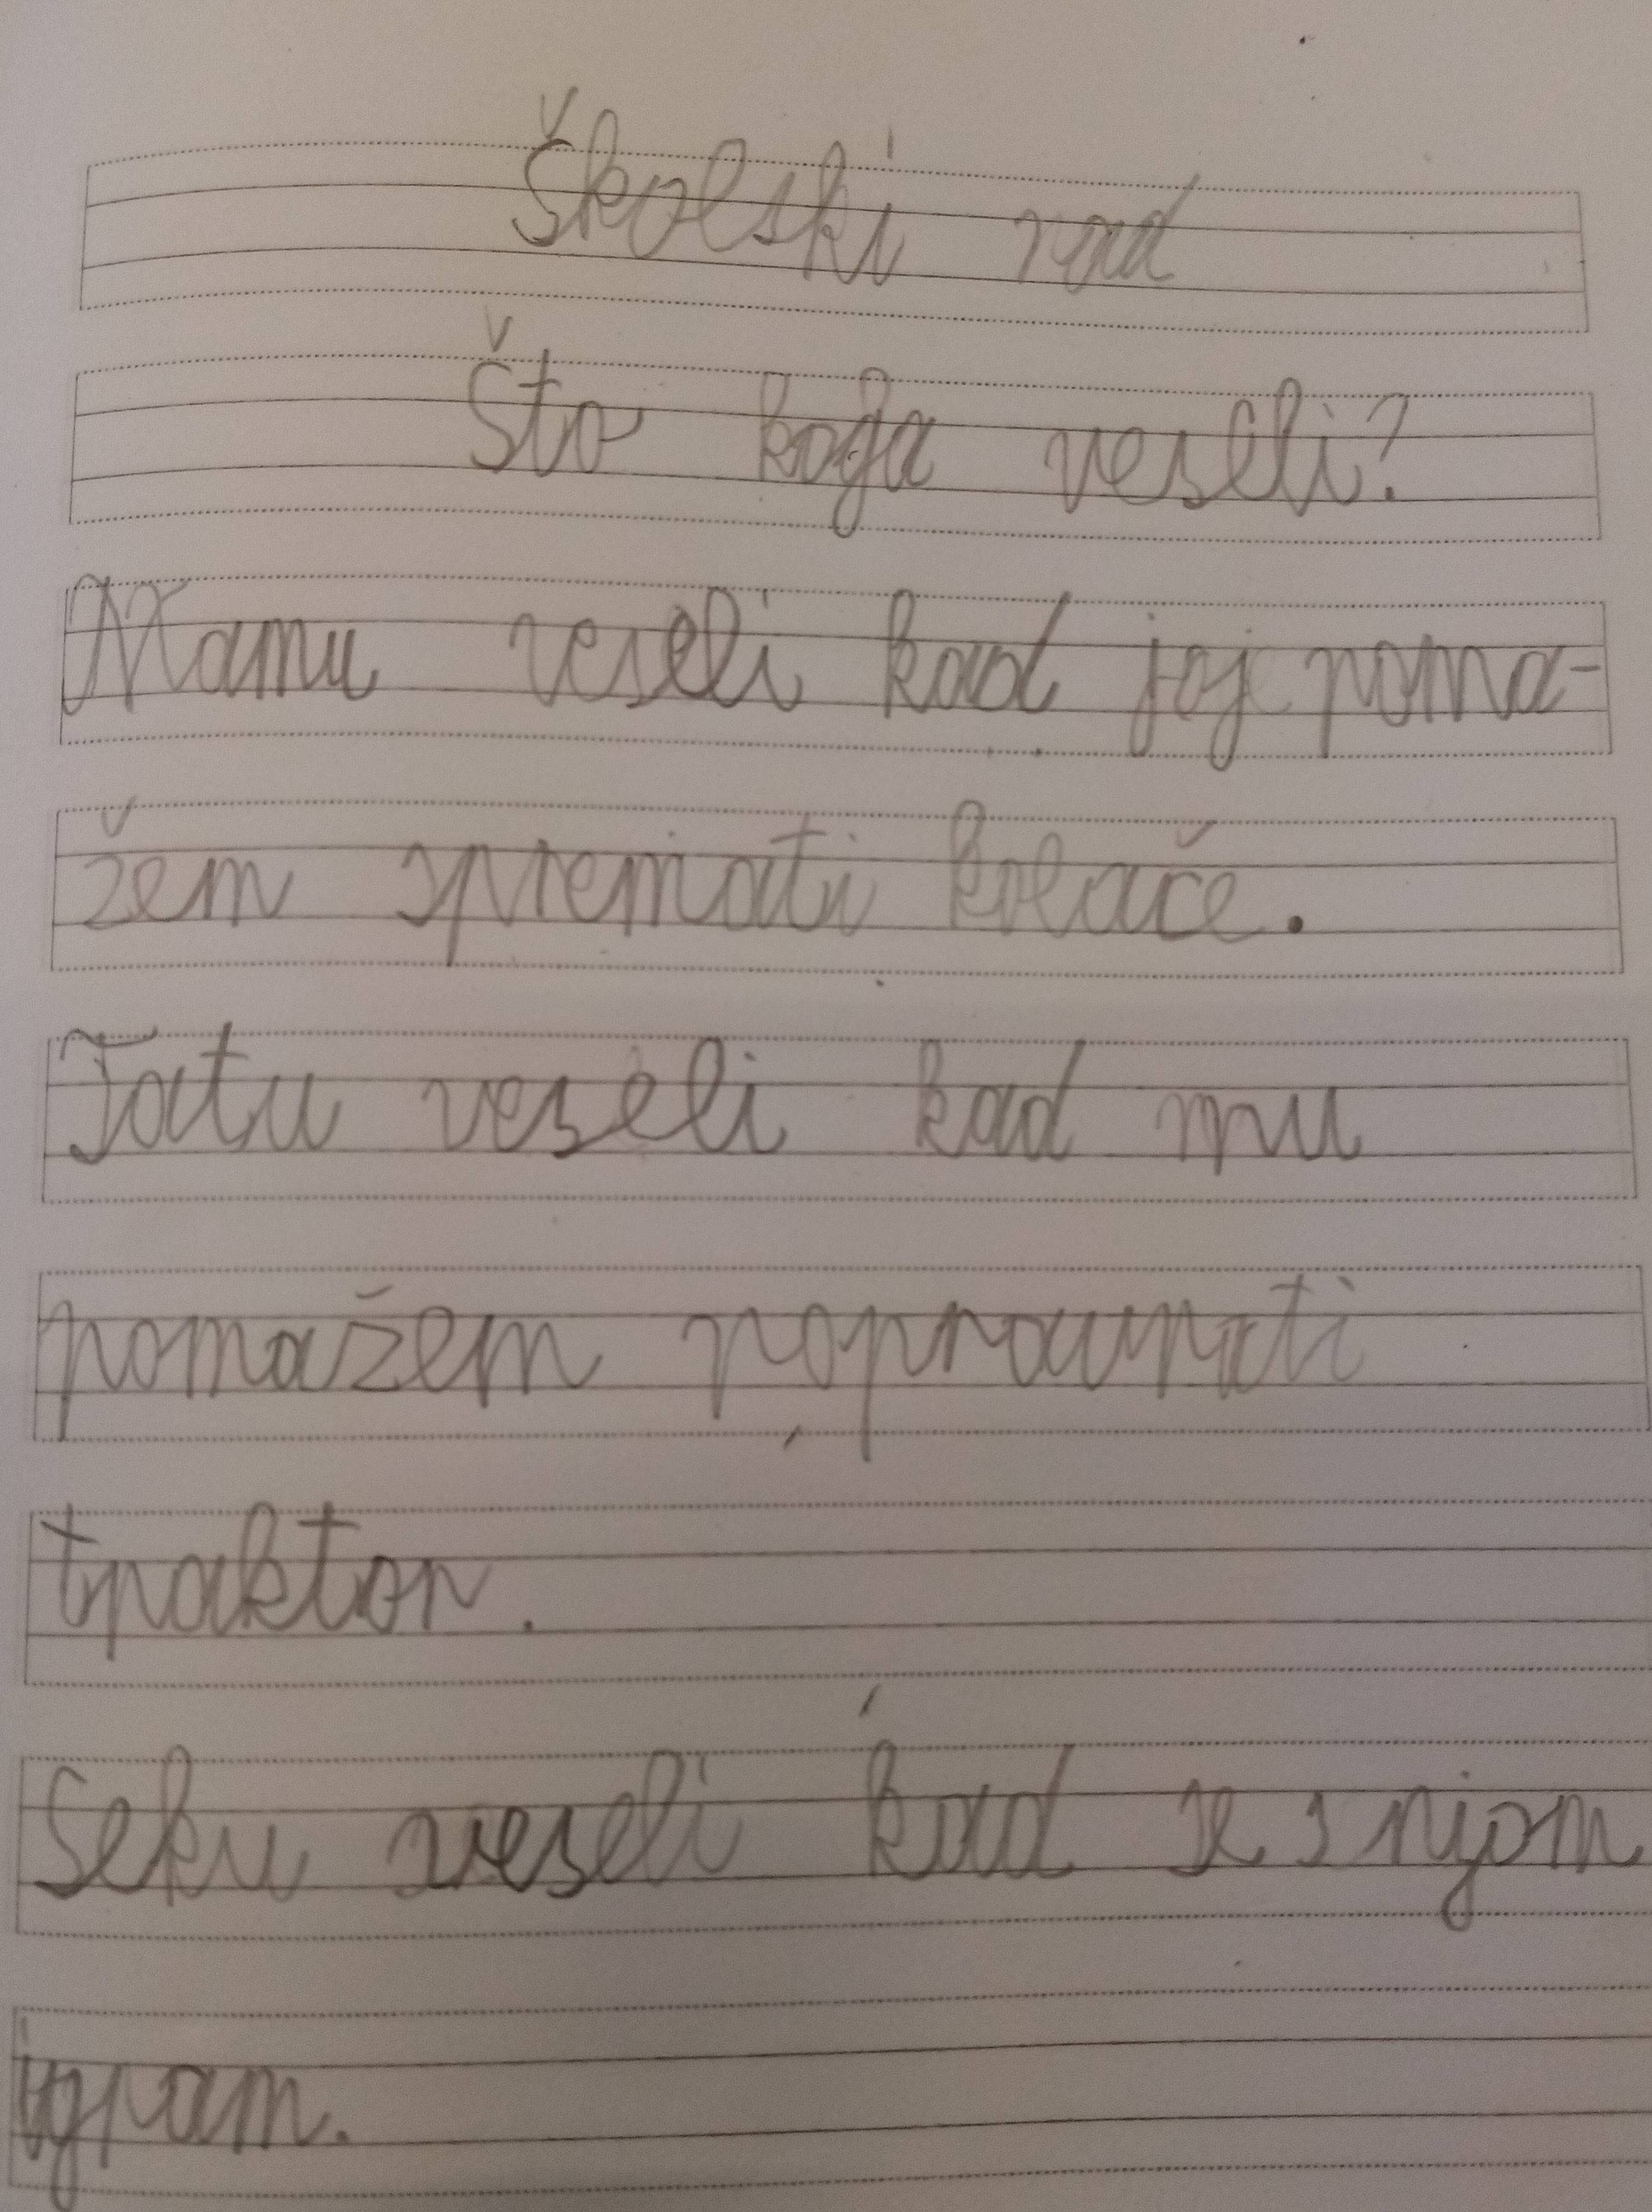 Školski rad
Što koga veseli?
Mamu veseli kad joj poma-
žem spremati kolače.
Tatu veseli kad mu
pomažem popravljati
traktor.
Seku veseli kad se s njom
igram.